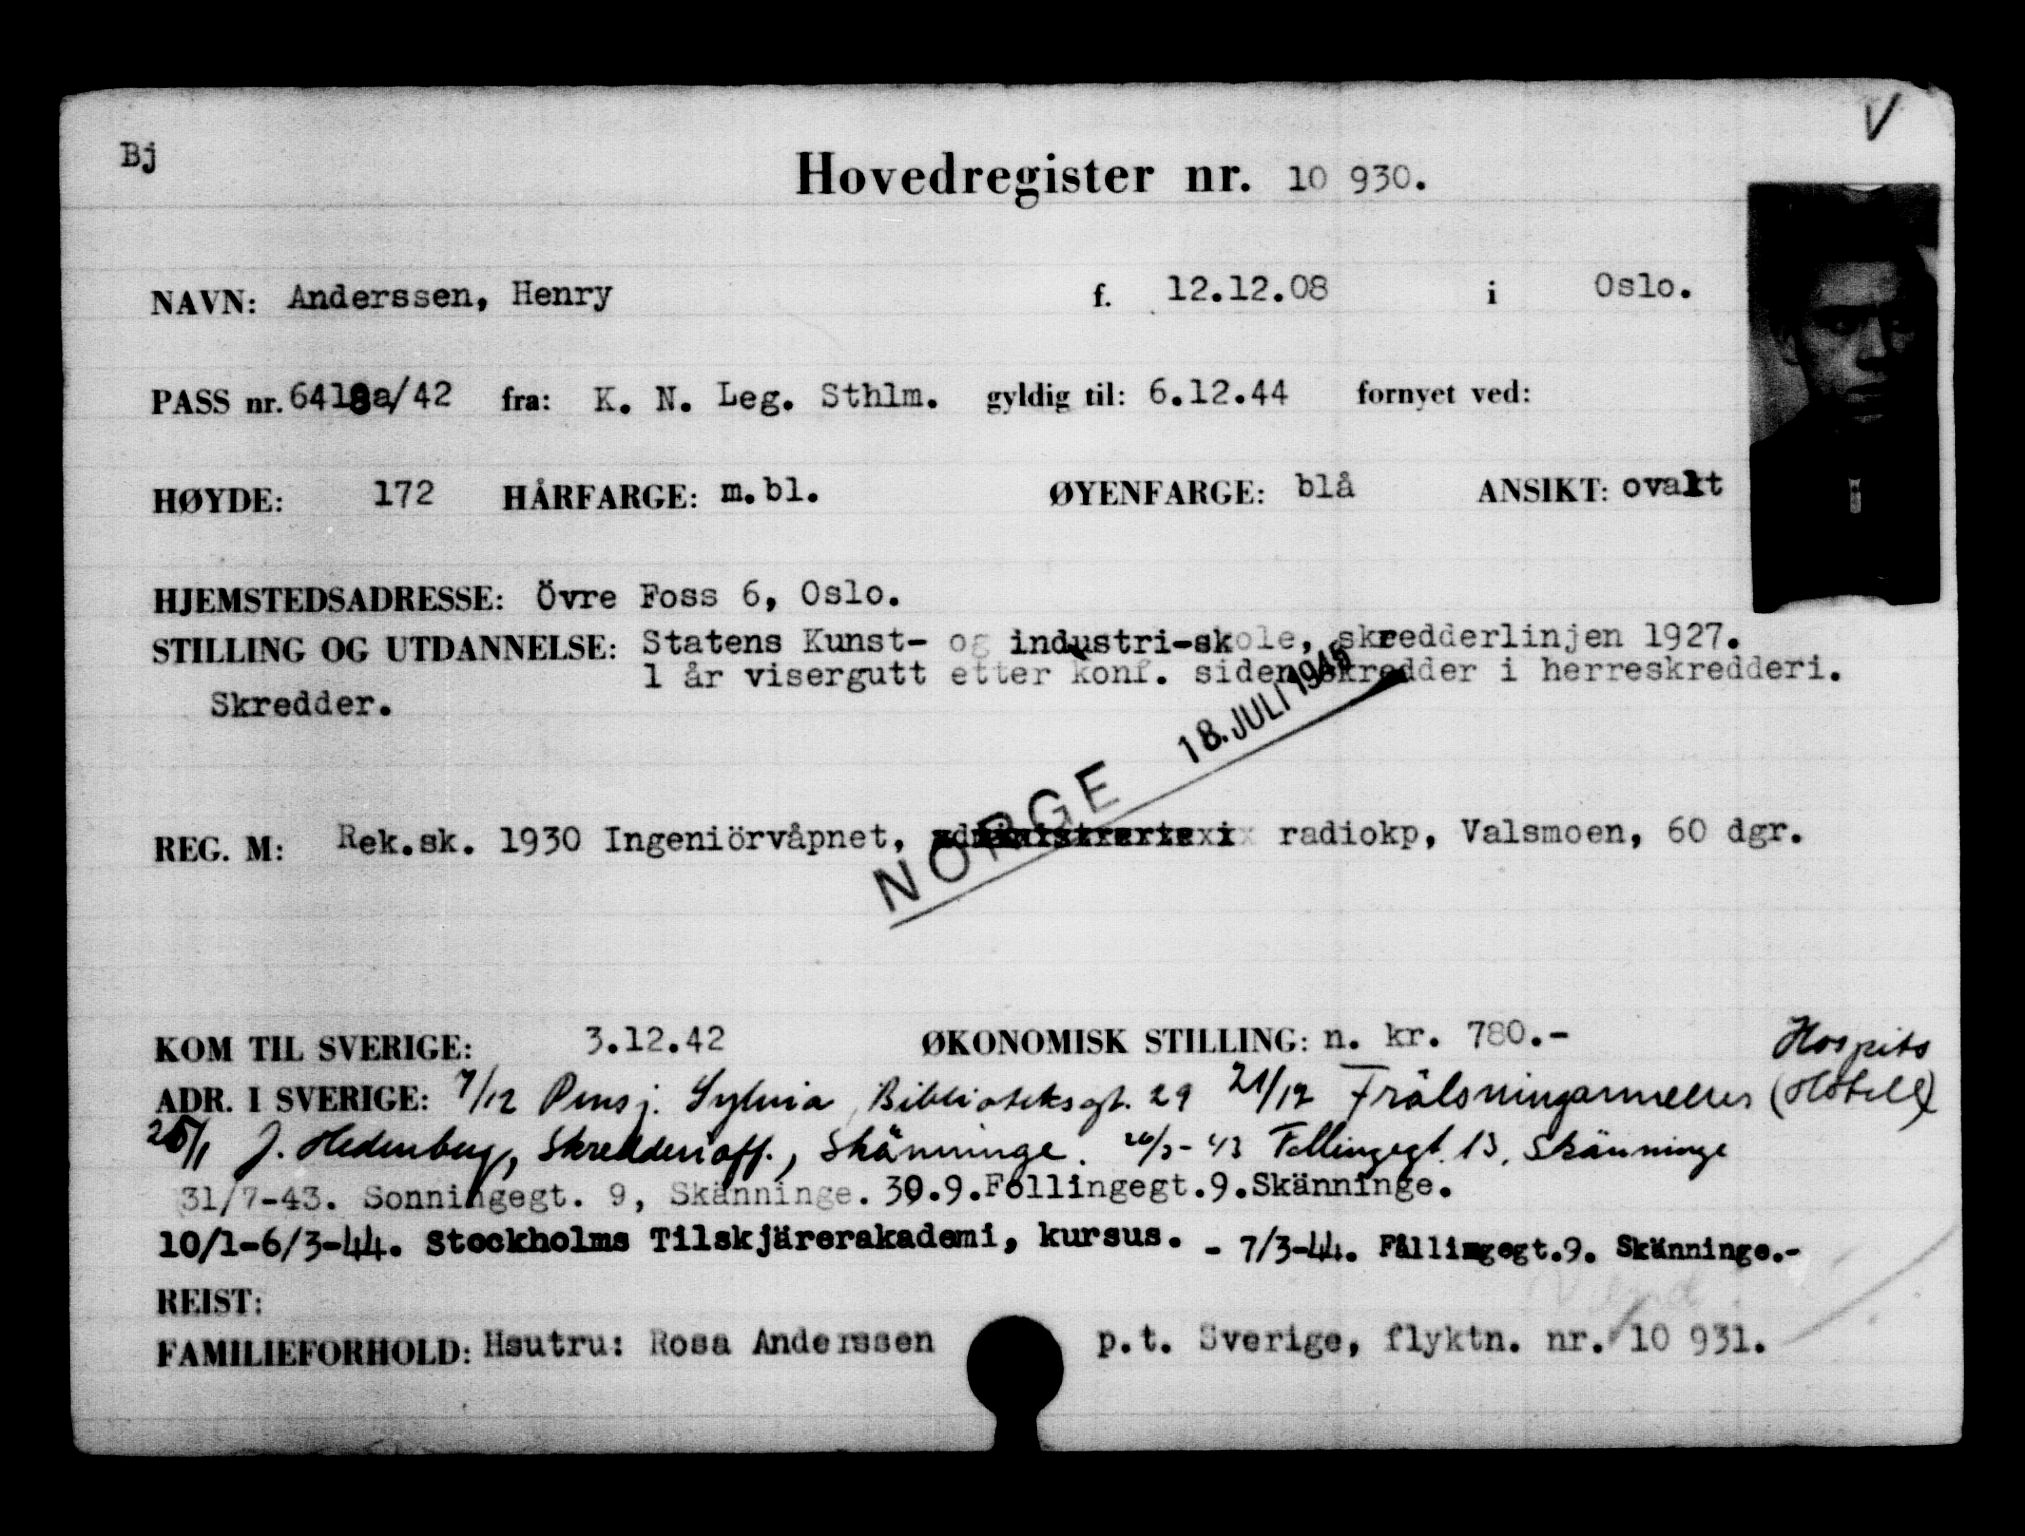 V
Bj
Hovedregister nr. 10 930.
NAVN: Anderssen, Henry f. 12.12.08 i Oslo.
PASS nr. 6418a/42 fra: K. N. Leg. Sthlm. gyldig til: 6.12.44 fornyet ved:
HØYDE: 172 HÅRFARGE: m.bl. ØYENFARGE: blå ANSIKT: ovalt
HJEMSTEDSADRESSE: Övre Foss 6, Oslo.
STILLING OG UTDANNELSE: Statens Kunst- og industri-skole, skredderlinjen 1927.
1 år visergutt etter konf. siden skredder i herreskredderi.
Skredder.
NORGE 18. JULI 1945
REG. M: Rek.sk. 1930 Ingeniörvåpnet, radiokp, Valsmoen, 60 dgr.
KOM TIL SVERIGE: 3.12.42 ØKONOMISK STILLING: n. kr. 780.-
Hospits
ADR. I SVERIGE: 7/12 Pensj. Sylvia, Biblioteksgt. 29 21/12 Frälsningarmeens (Hotell)
25/1 J. Hedenberg, Skredderiaff., Skänninge. 26/3-43 Follingegt. 13, Skänninge
31/7-43. Sonningegt. 9, Skänninge. 30.9.Follingegt.9.Skänninge.
10/1-6/3-44. Stockholms Tilskjärerakademi, kursus. - 7/3-44. Fållingegt.9. Skänninge.-
Vend
REIST:
FAMILIEFORHOLD: Hsutru: Rosa Anderssen p.t. Sverige, flyktn. nr. 10 931.